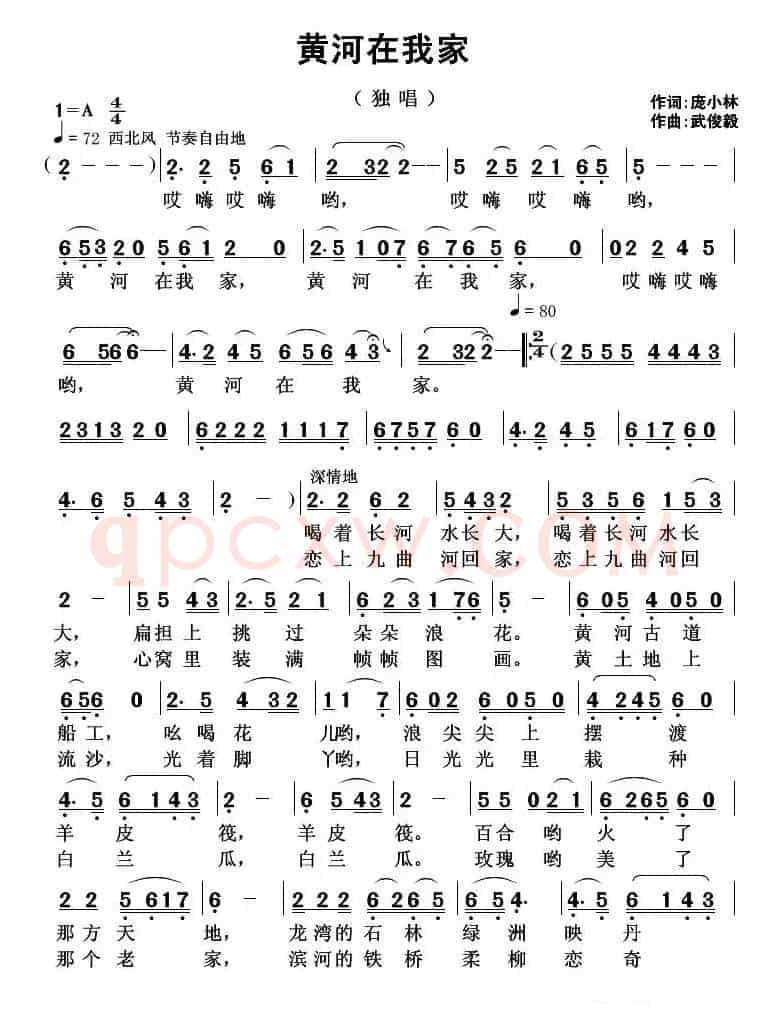 黄河在我家
（独唱）
1=A 4/4
作词:庞小林
♩=72 西北风 节奏自由地
作曲:武俊毅
(2 - - - | 2· 5 25 61 | 2 322 - - | 5 25 21 65 | 5 - - - |
哎嗨哎嗨 哟， 哎嗨哎嗨 哟，
653 20 561 2 0 | 2·5 107 6765 6 0 | 02 2 4 5 |
黄 河 在我 家， 黄 河 在 我 家， 哎嗨哎嗨
♩=80
6 566 6 - - | 4·2 45 6 56 6 43 | 2 322 2 - :‖ 2/4 (2555 4443 |
哟， 黄 河 在 我 家。
2313 20 | 6222 1117 | 6757 60 | 4·2 45 | 617 60 |
深情地
4·6 543 | 2 - ) | 2·2 62 | 5432 | 535 36 | 153 |
喝着长河 水长大， 喝着长河水长
恋上九曲 河回家， 恋上九曲河回
2 - | 55 43 | 2·5 21 | 623 176 | 5 - | 6 605 | 405 05 |
大， 扁担上 挑过 朵朵浪 花。 黄河古道
家， 心窝里 装满 帧帧图 画。 黄土地上
656 0 | 2·5 4 32 | 11 7 | 602 605 05 | 4 245 |
船工， 吆喝花 儿哟， 浪尖尖上 摆 渡
流沙， 光着脚 丫哟， 日光光里 栽 种
4·5 6 143 | 2 - | 65 543 | 2 - | 55 5021 | 6 265 5 |
羊皮 筏， 羊皮 筏。 百合哟火 了
白兰 瓜， 白兰 瓜。 玫瑰哟美 了
22 2 5617 | 6 - | 2·2 12 | 6265 | 652 54· | 6 143 |
那方天 地， 龙湾的石林 绿洲 映丹
那个老 家， 滨河的铁桥 柔柳 恋奇
qpcxw.COM